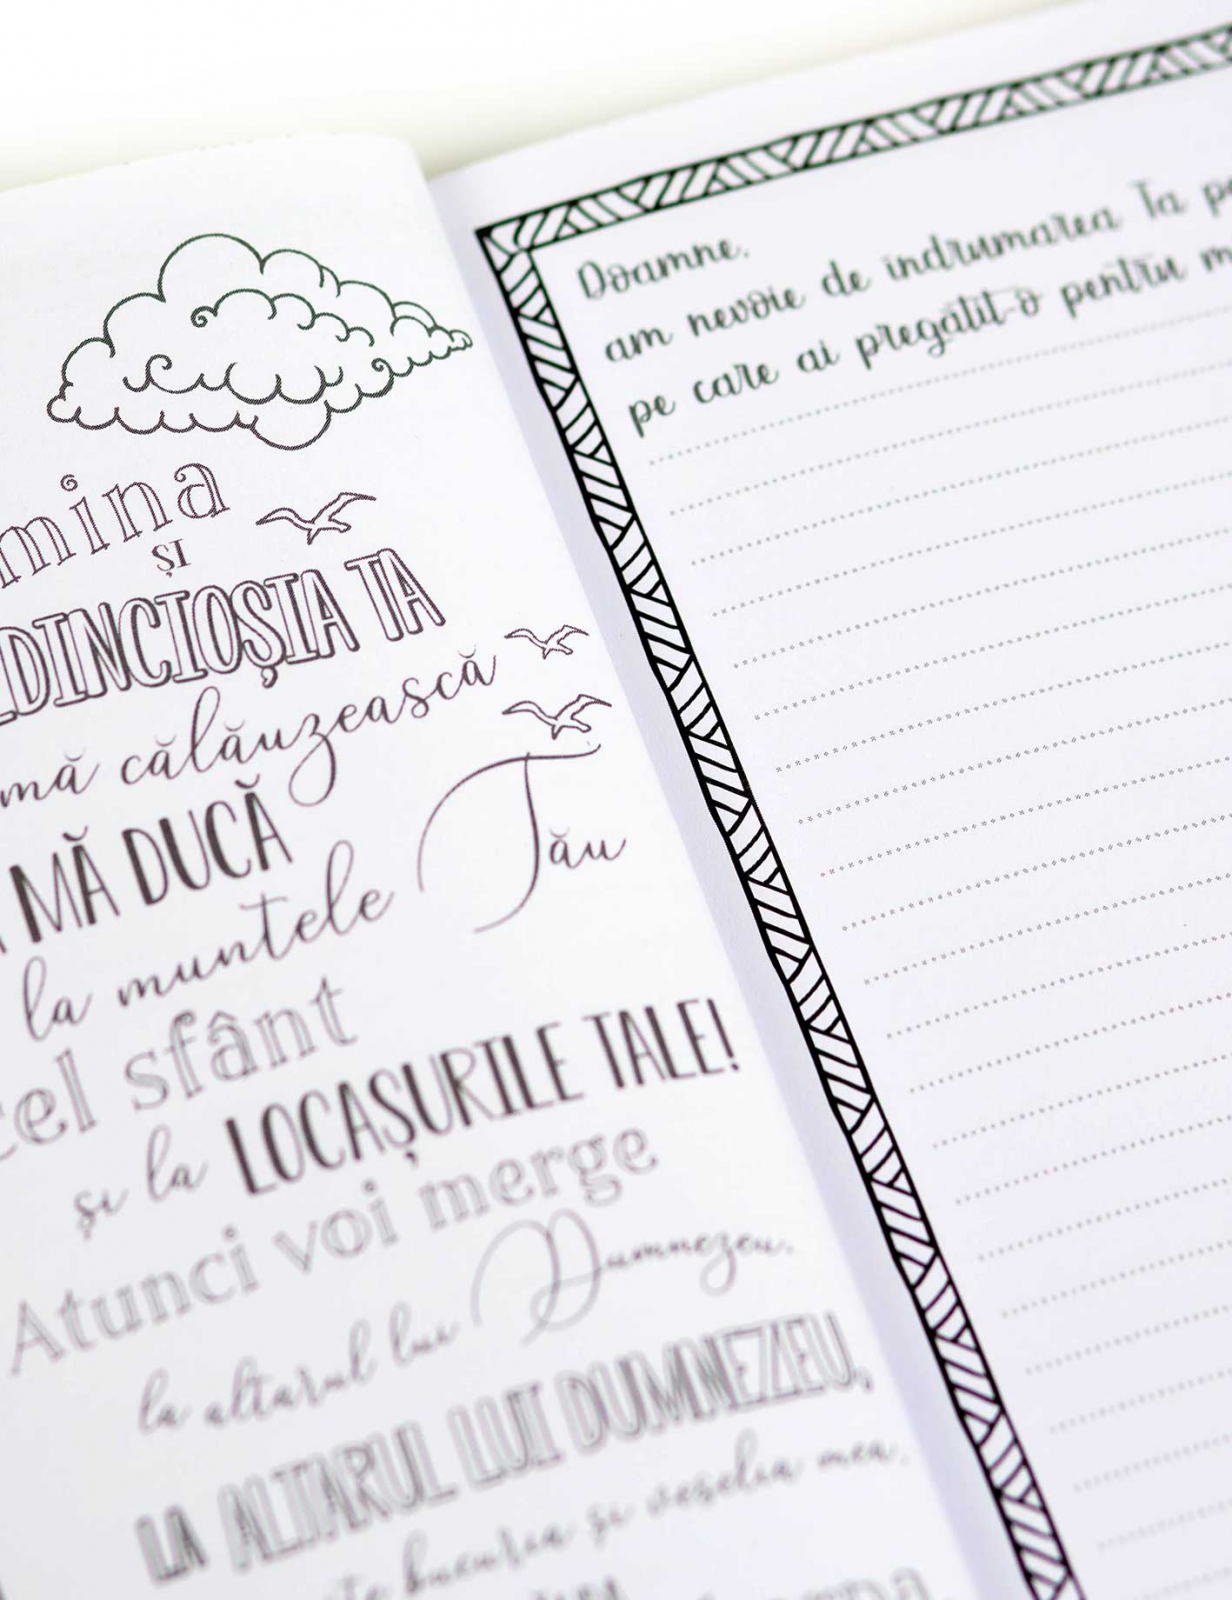 mina
ȘI
DINCIOȘIA TA
mă călăuzească
MĂ DUCĂ
la muntele Tău
cel sfânt
și la LOCAȘURILE TALE!
Atunci voi merge
la altarul lui Dumnezeu,
LA ALTARUL LUI DUMNEZEU,
bucuria și veselia mea.
Doamne,
am nevoie de îndrumarea Ta
pe care ai pregătit-o pentru